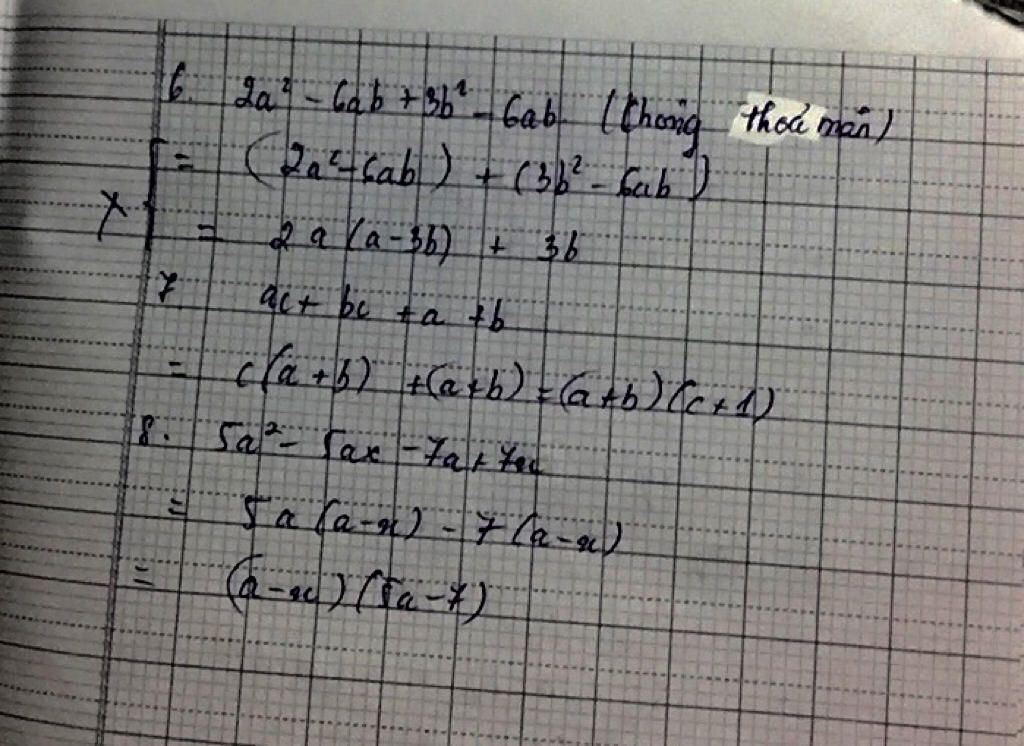 6. 2a² - 6ab + 3b² - 6ab (không thoả mãn)
= (2a² - 6ab) + (3b² - 6ab)
= 2a (a - 3b) + 3b
7 ac + bc + a + b
= c(a + b) + (a + b) = (a + b) (c + 1)
8. 5a² - 5ax - 7a + 7x
= 5a (a - x) - 7 (a - x)
= (a - x) (5a - 7)